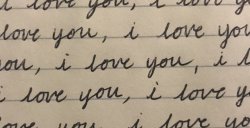 i love you, i love yo
love you, i love you,
ou, i love you, i
i love you, i love y
love you, i love you